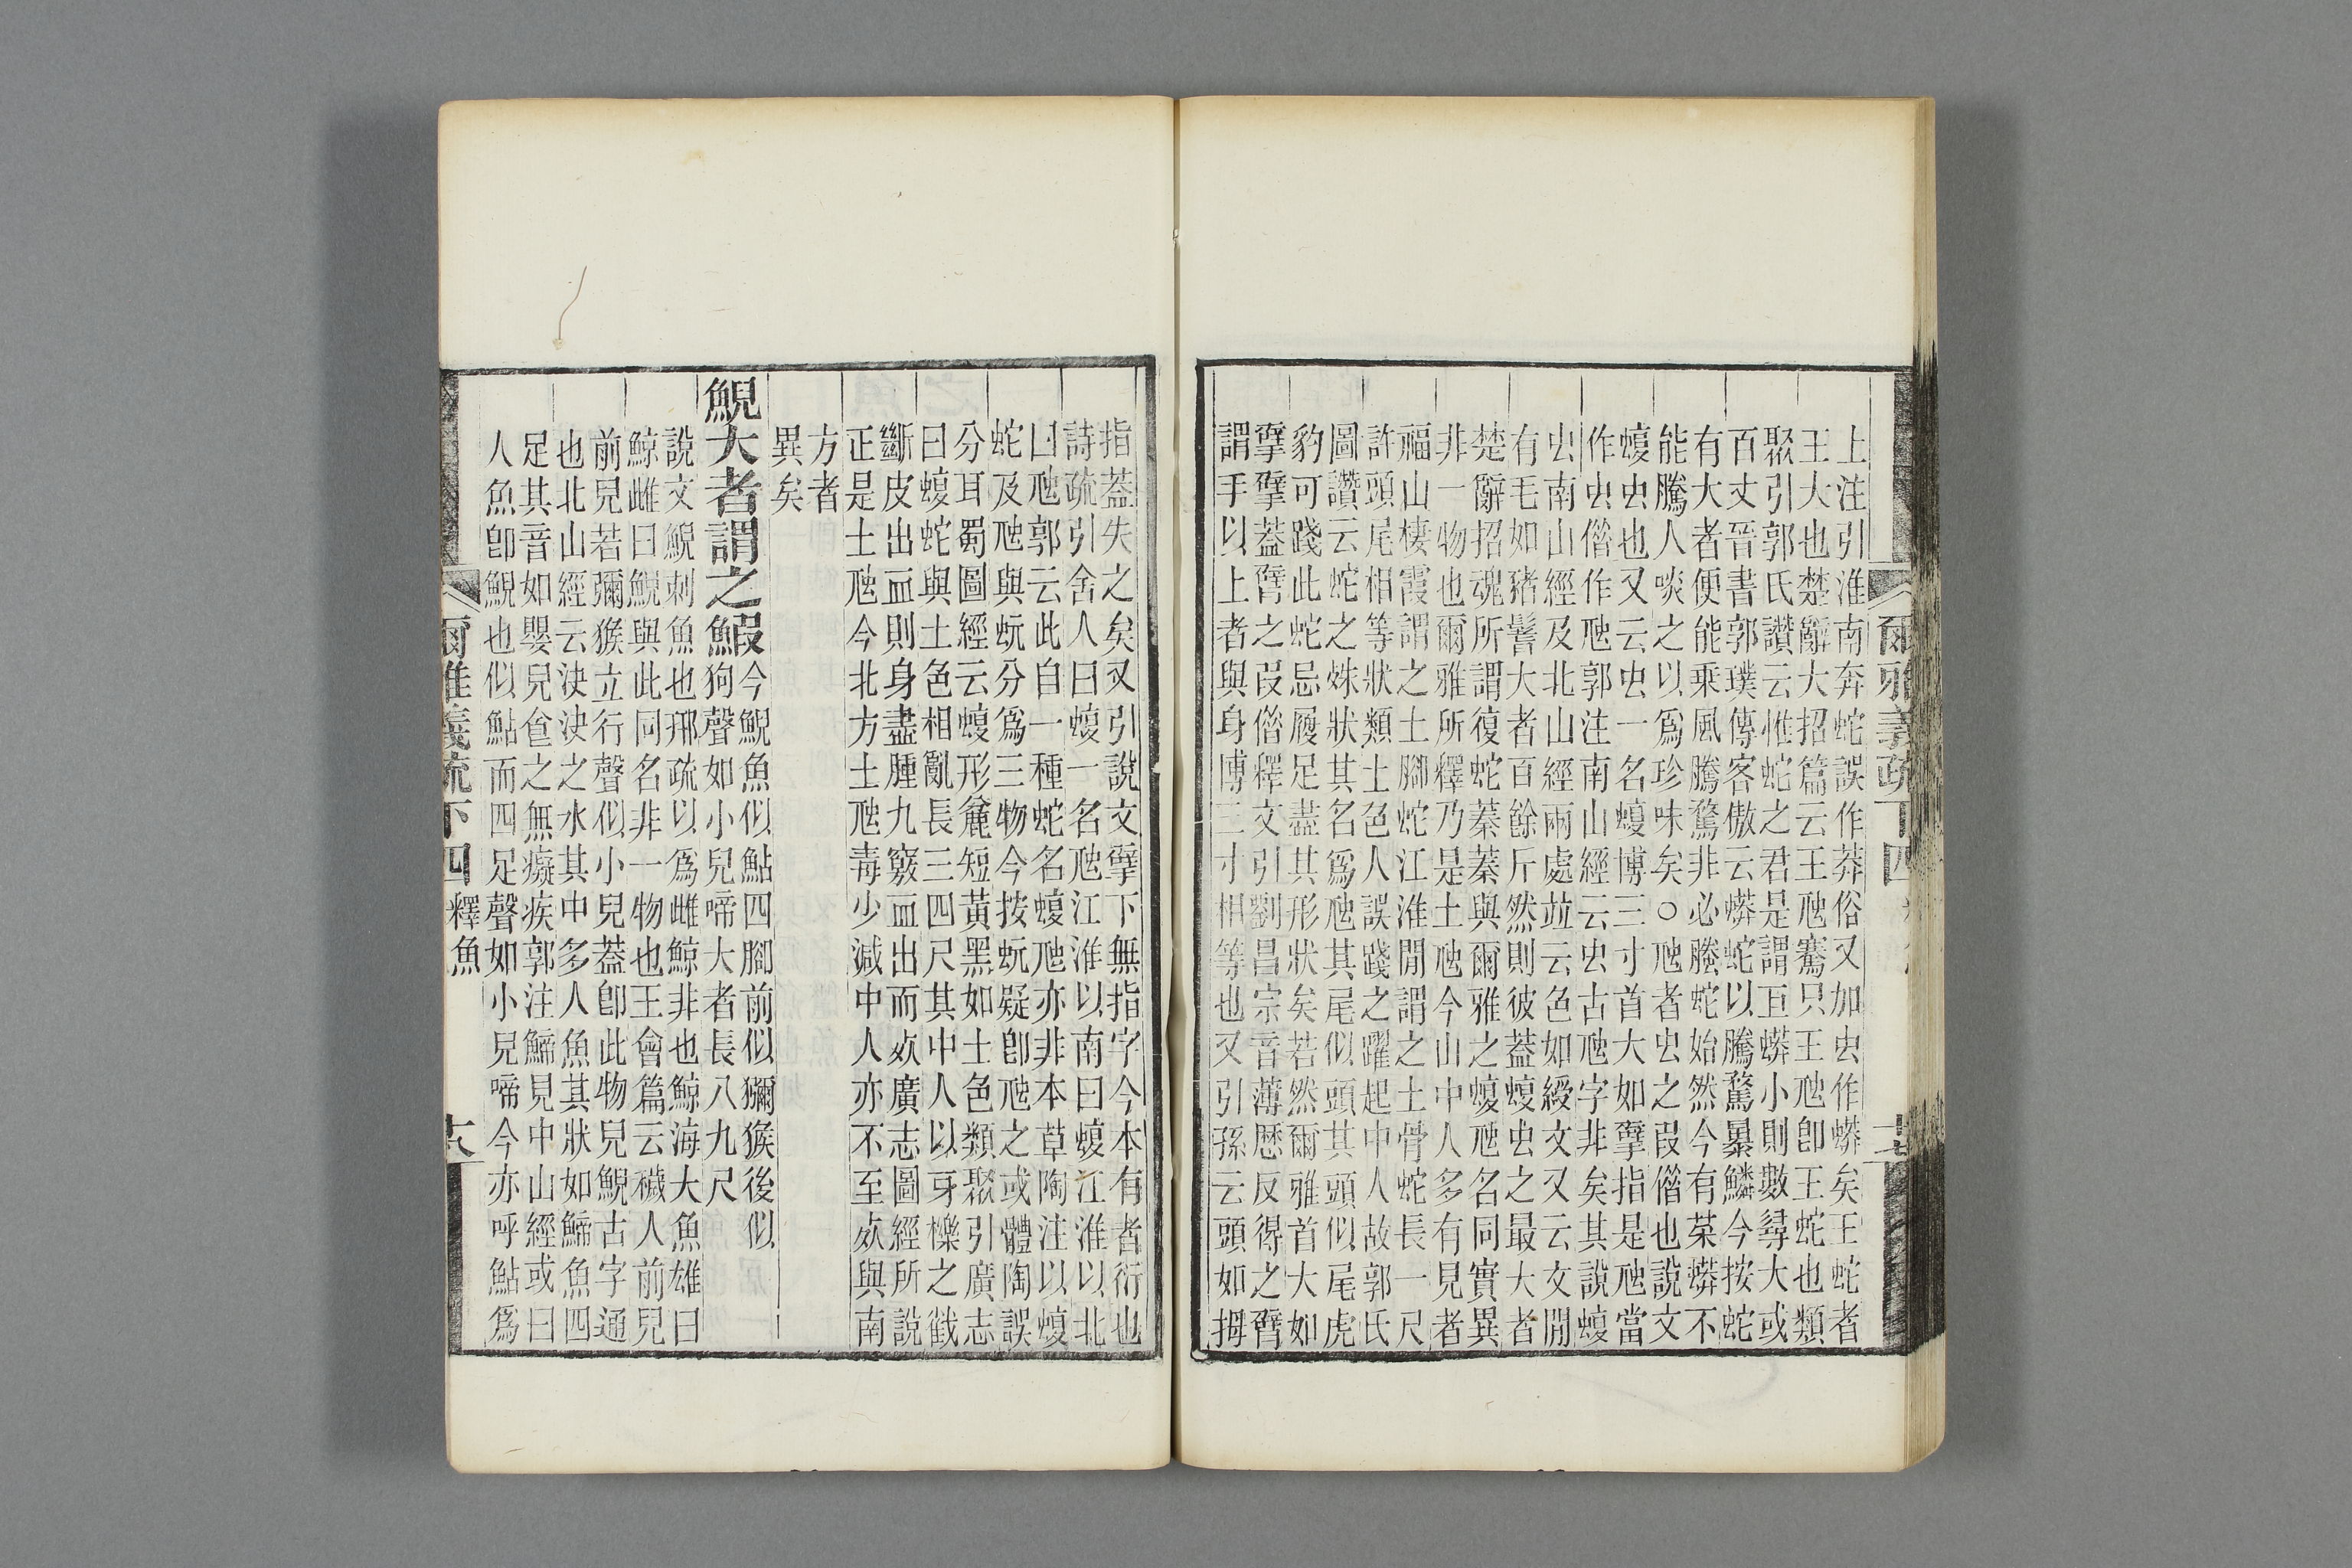 上注引淮南奔蛇誤作莽俗又加虫作蟒矣王蛇者
王大也楚辭大招篇云王虺騫只王虺卽王蛇也類
聚引郭氏讚云惟蛇之君是謂巨蟒小則數尋大或
百丈晉書郭璞傳客傲云蟒蛇以騰騖暴鱗今按蛇
有大者便能乘風騰騖非必螣蛇始然今有菜蟒不
能騰人啖之以爲珍味矣○虺者虫之叚借也說文
蝮虫也又云虫一名蝮博三寸首大如擘指是虺當
作虫借作虺郭注南山經云虫古虺字非矣其說蝮
虫南山經及北山經兩處竝云色如綬文又云文閒
有毛如豬鬐大者百餘斤然則彼蓋蝮虫之最大者
楚辭招魂所謂復蛇蓁蓁與爾雅之蝮虺名同實異
非一物也爾雅所釋乃是土虺今山中人多有見者
福山棲霞謂之土腳蛇江淮閒謂之土骨蛇長一尺
許頭尾相等狀類土色人誤踐之躍起中人故郭氏
圖讚云蛇之殊狀其名爲虺其尾似頭其頭似尾虎
豹可踐此蛇忌履足盡其形狀矣若然爾雅首大如
擘擘蓋臂之叚借釋文引劉昌宗音薄厯反得之臂
謂手以上者與身博三寸相等也又引孫云頭如拇
指蓋失之矣又引說文擘下無指字今本有者衍也
詩疏引舍人曰蝮一名虺江淮以南曰蝮江淮以北
曰虺郭云此自一種蛇名蝮虺亦非本草陶注以蝮
蛇及虺與蚖分爲三物今按蚖疑卽虺之或體陶誤
分耳蜀圖經云蝮形麄短黃黑如土色類聚引廣志
曰蝮蛇與土色相亂長三四尺其中人以牙櫟之戳
斷皮出血則身盡腫九竅血出而𣦸廣志圖經所說
正是土虺今北方土虺毒少減中人亦不至𣦸與南
方者
異矣
鯢大者謂之鰕今鯢魚似鮎四腳前似獼猴後似
狗聲如小兒啼大者長八九尺
說文鯢刺魚也邢疏以爲雌鯨非也鯨海大魚雄曰
鯨雌曰鯢與此同名非一物也王會篇云穢人前兒
前兒若彌猴立行聲似小兒蓋卽此物兒鯢古字通
也北山經云決決之水其中多人魚其狀如䱱魚四
足其音如嬰兒食之無癡疾郭注䱱見中山經或曰
人魚卽鯢也似鮎而四足聲如小兒啼今亦呼鮎爲
爾雅義疏下四 釋魚 十八
爾雅義疏下四 十七